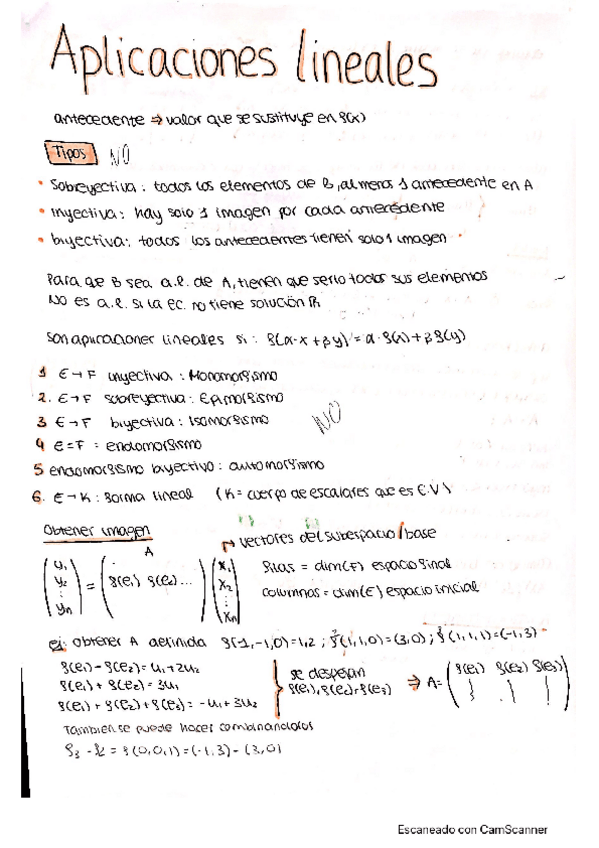 Aplicaciones lineales
antecedente ⇒ valor que se sustituye en f(x)
Tipos NO
• Sobreyectiva: todos los elementos de B, al menos 1 antecedente en A
• inyectiva: hay solo 1 imagen por cada antecedente
• biyectiva: todos los antecedentes tienen solo 1 imagen
Para que B sea a.l. de A, tienen que serlo todos sus elementos
No es a.l. si la ec. no tiene solución R.
Son aplicaciones lineales si: f(α·x + βy) = α·f(x) + βf(y)
1 E→F inyectiva: Monomorfismo
2. E→F sobreyectiva: Epimorfismo
3 E→F biyectiva: Isomorfismo NO
4 E=F = endomorfismo
5 endomorfismo biyectivo: automorfismo
6. E→K: forma lineal (K = cuerpo de escalares que es E.V)
Obtener imagen
vectores del subespacio/base
A
(y₁ y₂ ⋮ yn) = (f(e₁) f(e₂)...) (x₁ x₂ ⋮ xn)
filas = dim(F) espacio final
columnas = dim(E) espacio inicial
ej: obtener A definida f(1,-1,0)=1,2; f(1,1,0)=(3,0); f(1,1,1)=(-1,3)
f(e₁) - f(e₂) = u₁ + 2u₂
f(e₁) + f(e₂) = 3u₁
f(e₁) + f(e₂) + f(e₃) = -u₁ + 3u₂
se despejan
f(e₁), f(e₂), f(e₃) ⇒ A = (f(e₁) f(e₂) f(e₃))
También se puede hacer combinandolos
f₃ - f₂ = f(0,0,1) = (-1,3) - (3,0)
Escaneado con CamScanner